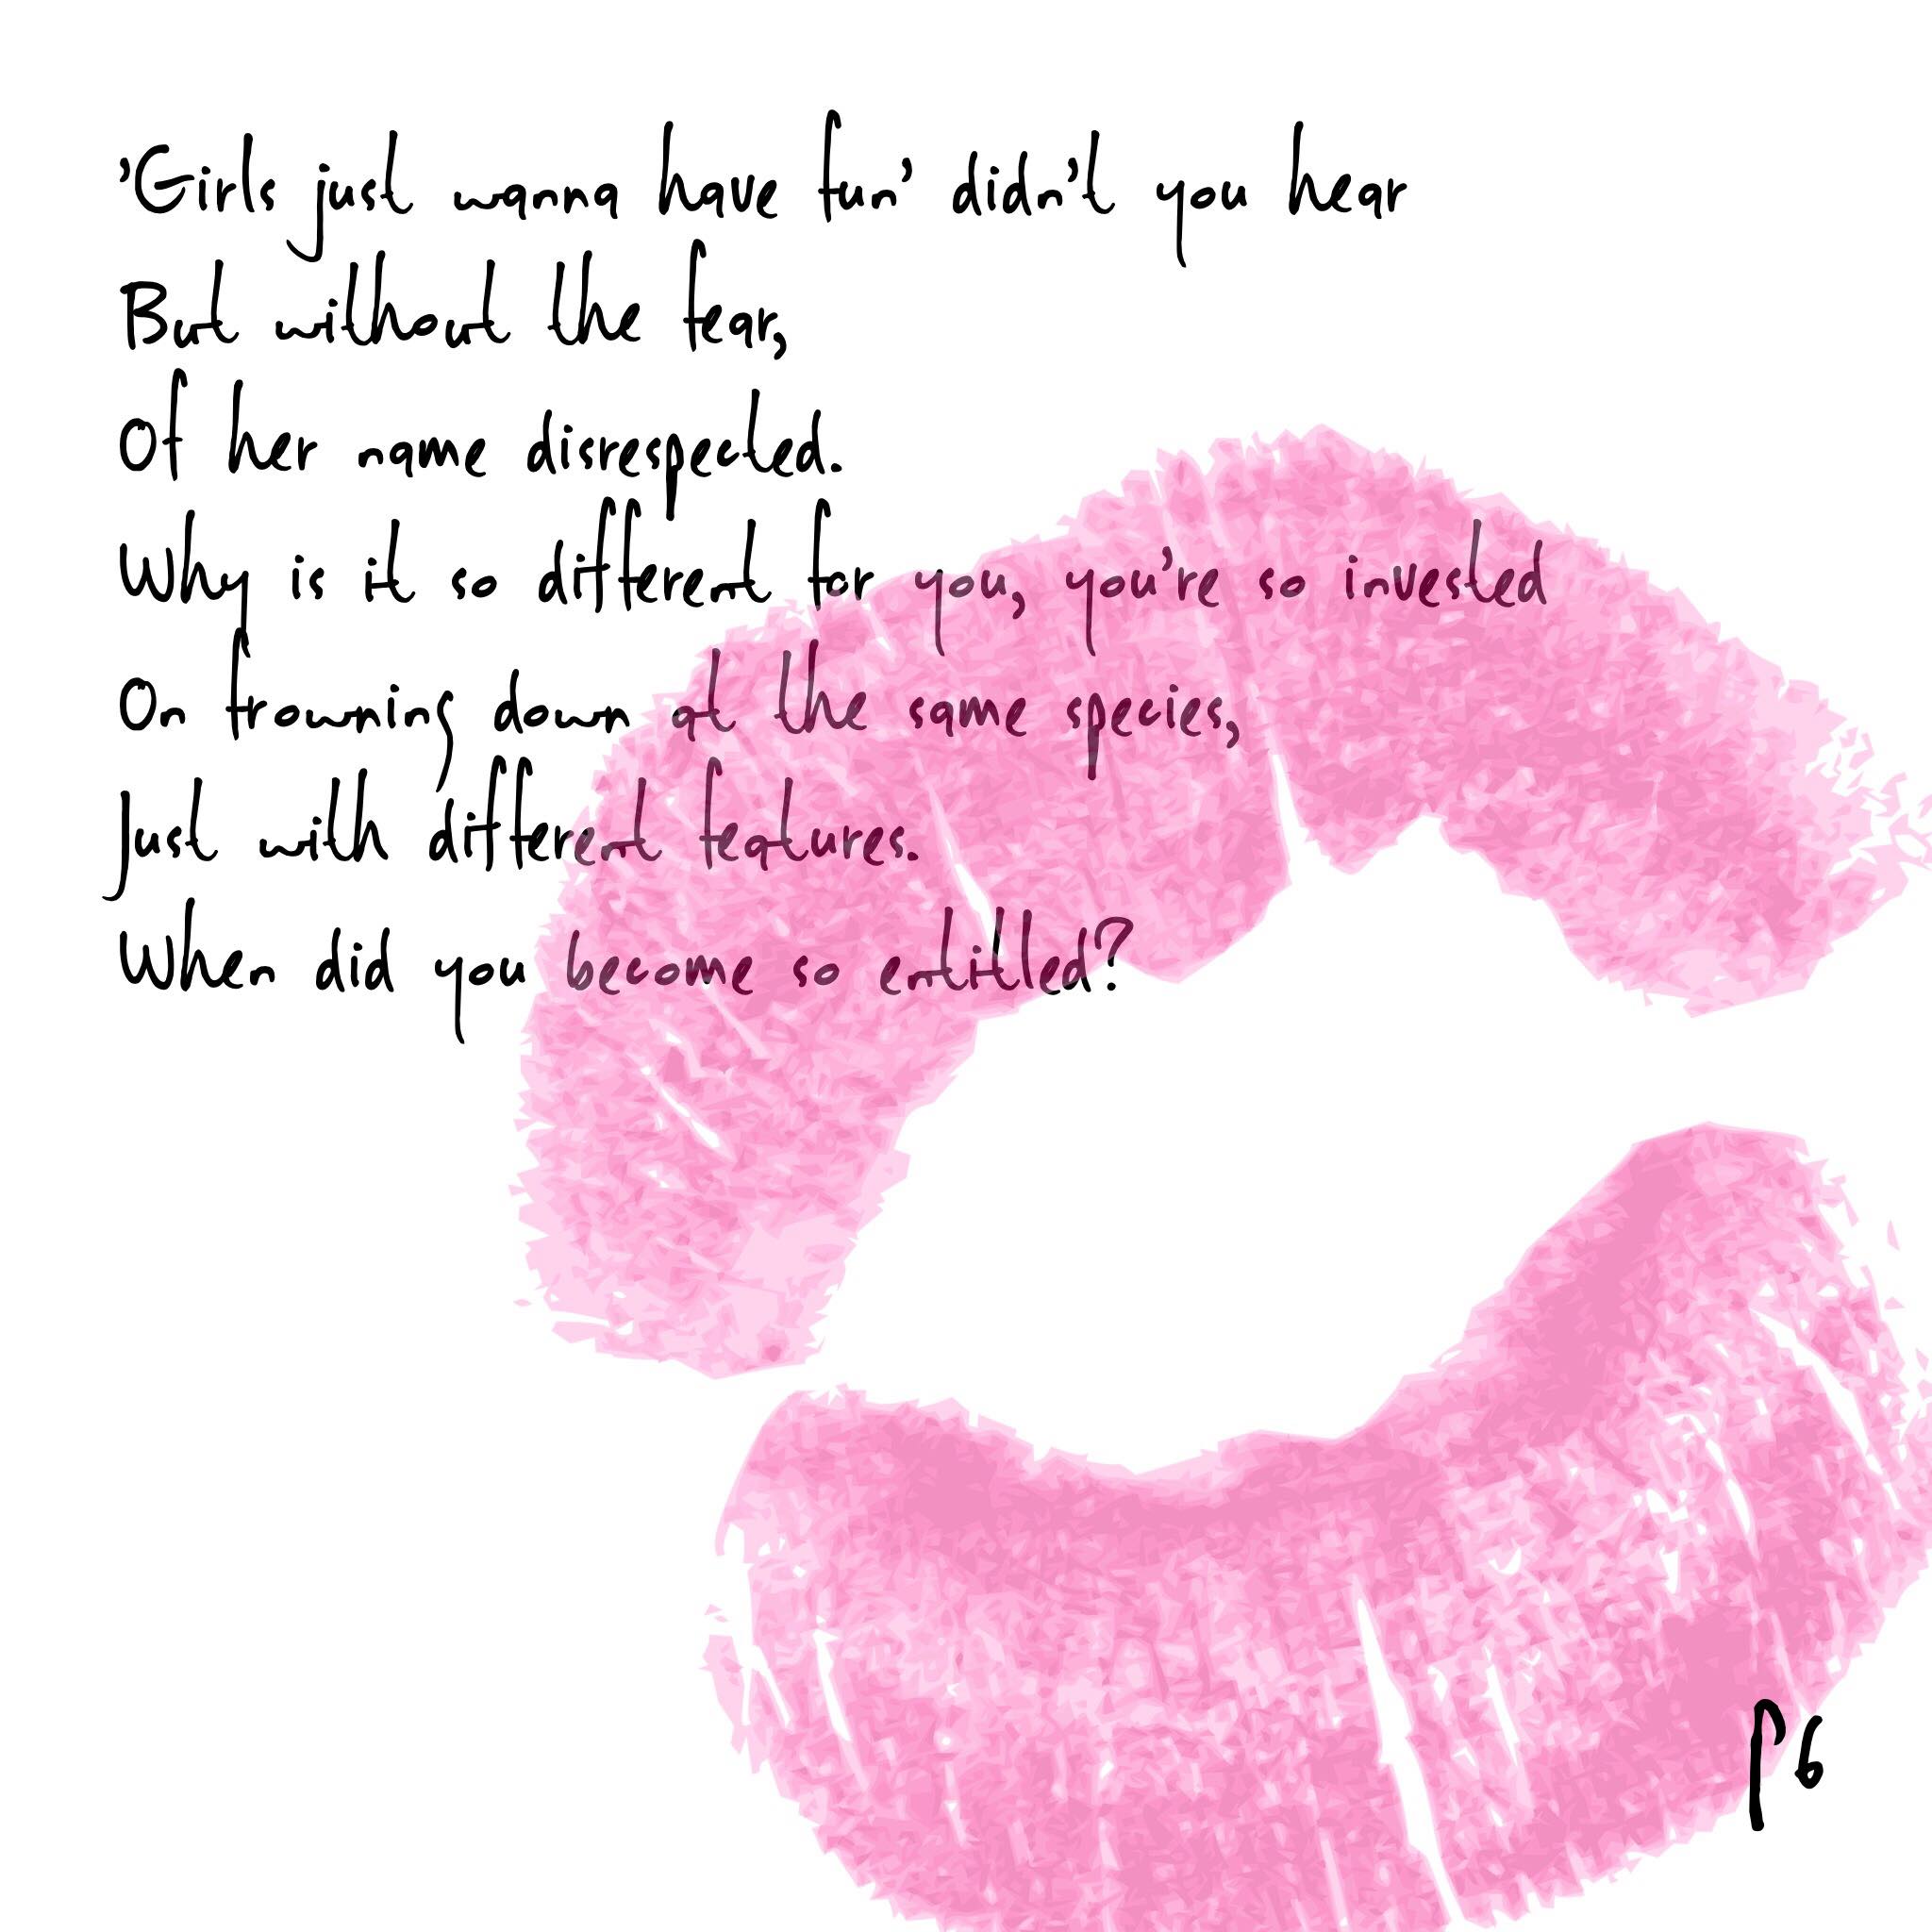 'Girls just wanna have fun' didn't you hear
But without the fear,
Of her name disrespected.
Why is it so different for you, you're so invested
On frowning down at the same species,
Just with different features.
When did you become so entitled?
P6